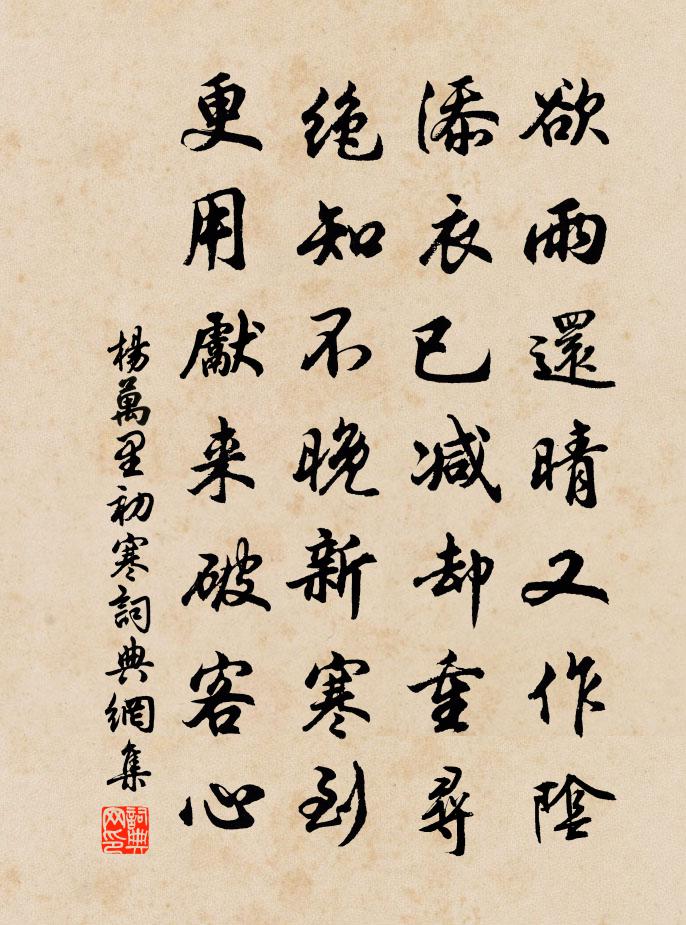 欲雨還晴又作陰
添衣已減却重尋
絶知不晚新寒到
更用獻来破客心
楊萬里初寒詞典網集
詞典网印